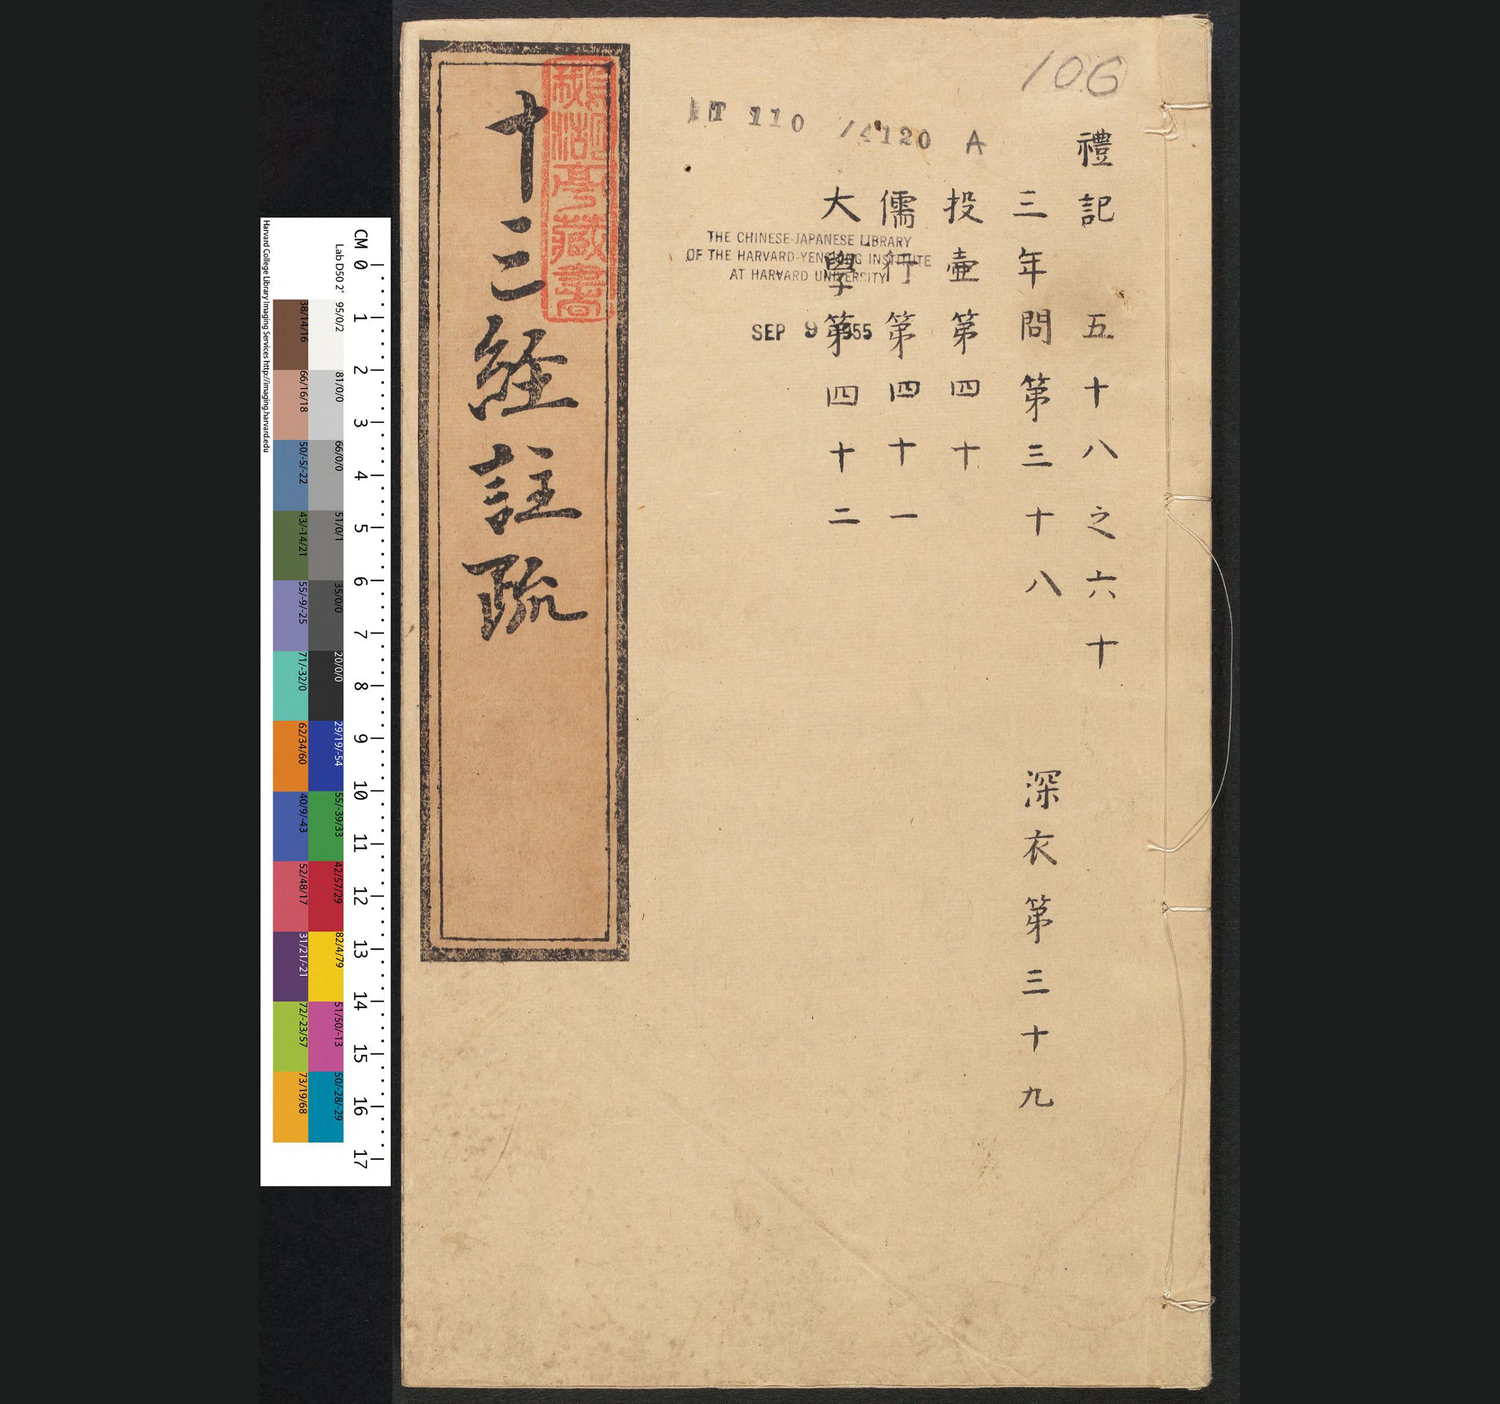 106
禮記 五十八之六十
三年問第三十八 深衣第三十九
投壺第四十
儒行第四十一
大學第四十二
T 110 /4120 A
THE CHINESE-JAPANESE LIBRARY
OF THE HARVARD-YENCHING INSTITUTE
AT HARVARD UNIVERSITY
SEP 9 1955
十三経註疏
藏書
CM 0 1 2 3 4 5 6 7 8 9 10 11 12 13 14 15 16 17
Lab D50 2°
95/0/2
81/0/0
66/0/0
51/0/1
35/0/0
20/0/0
29/19/-54
55/-39/33
42/57/29
82/4/79
51/50/-13
50/-28/-29
38/14/16
66/16/18
50/-5/-22
43/-14/21
55/-9/-25
71/-32/0
62/34/60
40/9/-43
52/48/17
31/21/-21
72/-23/57
73/19/68
Harvard College Library Imaging Services http://imaging.harvard.edu